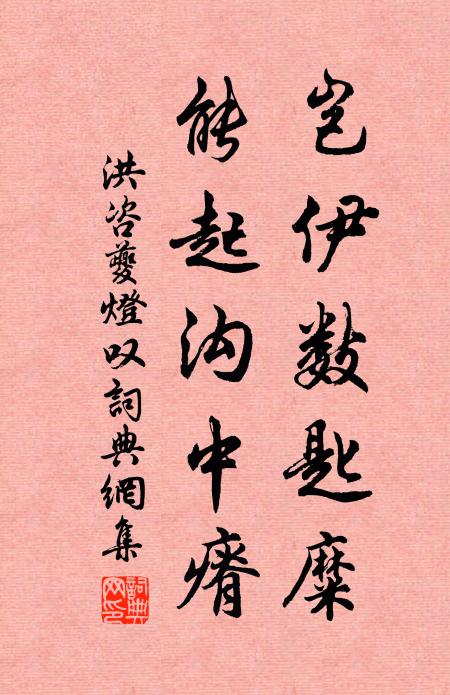 岂伊数匙糜
能起沟中瘠
洪咨夔燈叹詞典網集
詞典